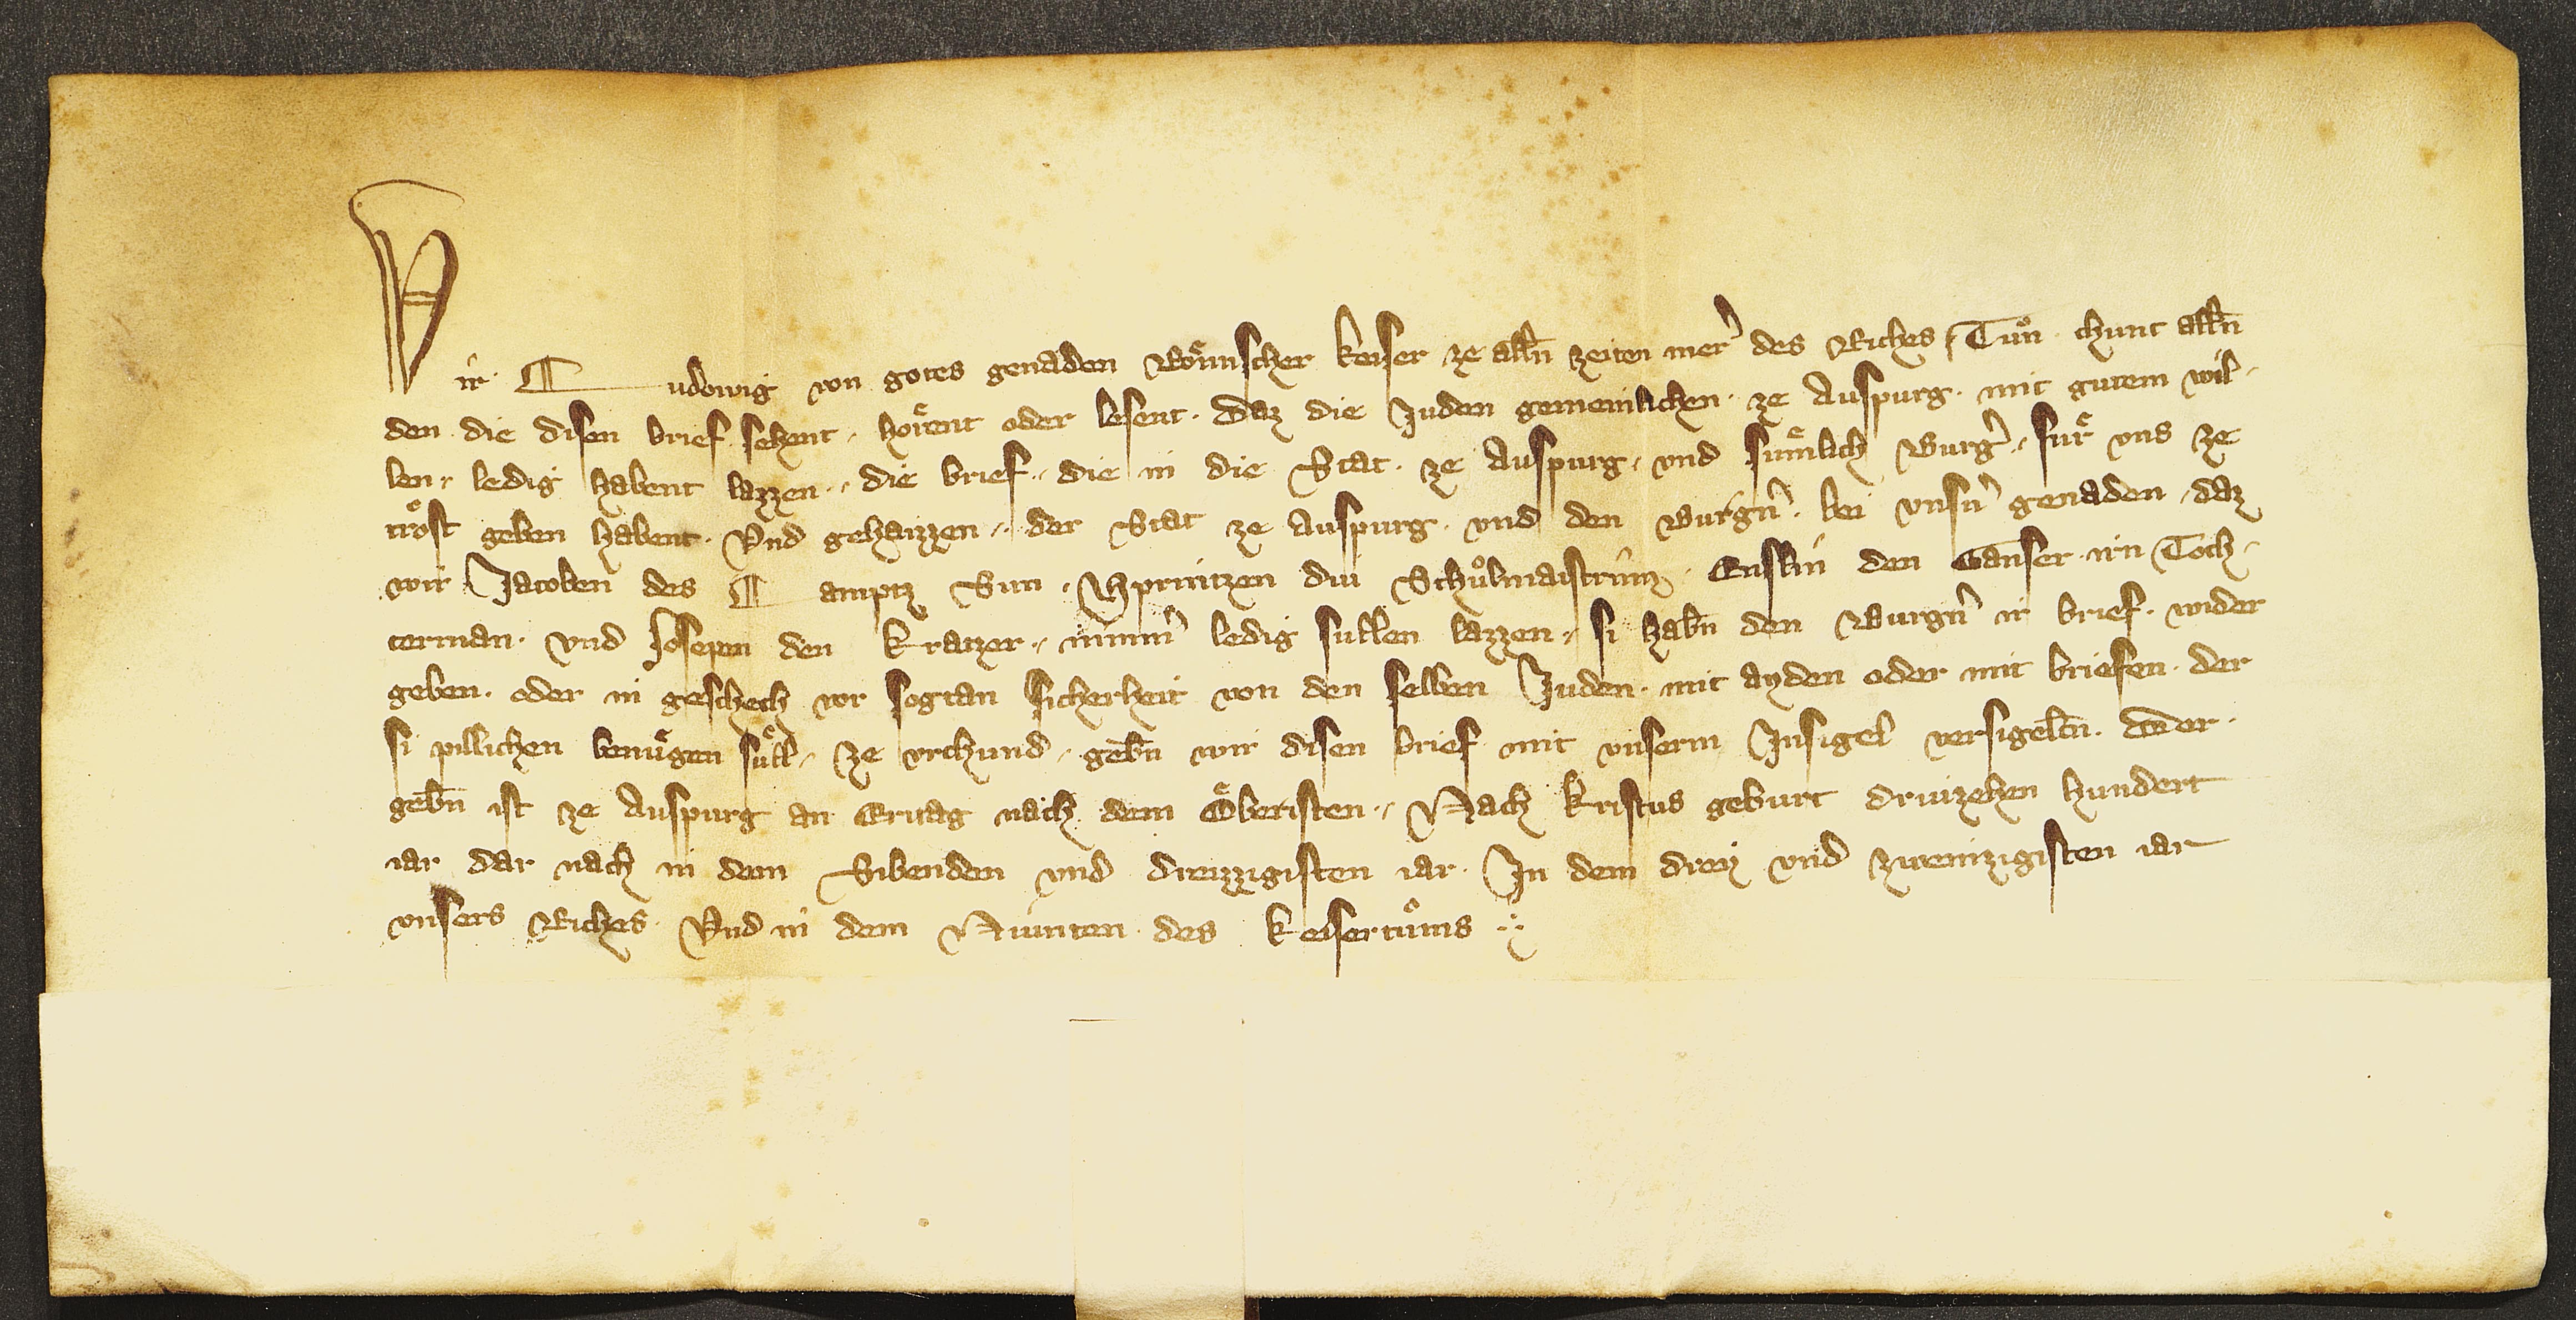 Wir Ludowig von gotes genaden Roͤmischer keiser ze alln̄ zeiten merˀ des Riches Tuͦn chunt alln̄
den die disen brief sehent, hoͤrent oder lesent. Daz die Juden gemeinlichen. ze Auspurg. mit gutem wil-
len. ledig habent lazzen. die brief. die in die Stat. ze Auspurg. und suͤmlich Burgˀ. fuͤr uns ze
troͤst geben habent. Und gehaizzen. der Stat ze Auspurg. und den Burgnˀ. bei unsnˀ genaden. daz
wir Jacoben des Lamptz Sun. Sprintzen diu Schuͦlmaistrinn. Enslin den Ganser irn Toch-
terman. und Josepen den Kratzer. nimmˀ ledig sullen lazzen. si habn̄ den Burgnˀ ir brief. wider
geben. oder in geschech vor sogtan sicherheit von den selben Juden. mit ayden oder mit briefen. der
si pillichen benuͤgen suͤll. ze urchund. gebn̄ wir disen brief mit unserm Insigel versigeltn̄. Der
gebn̄ ist ze Auspurg an Eritag nach dem Oͤberisten. Nach Kristus geburt driuzehen hundert
iar dar nach in dem Sibenden und dreizzigisten iar. In dem drey und zweinzigisten iar
unsers Riches. Und in dem Niunten. des keisertuͦms